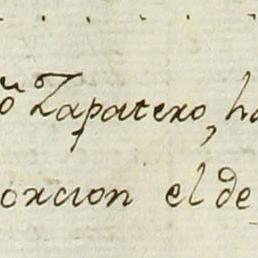 Zapatero, ha
orcion el de